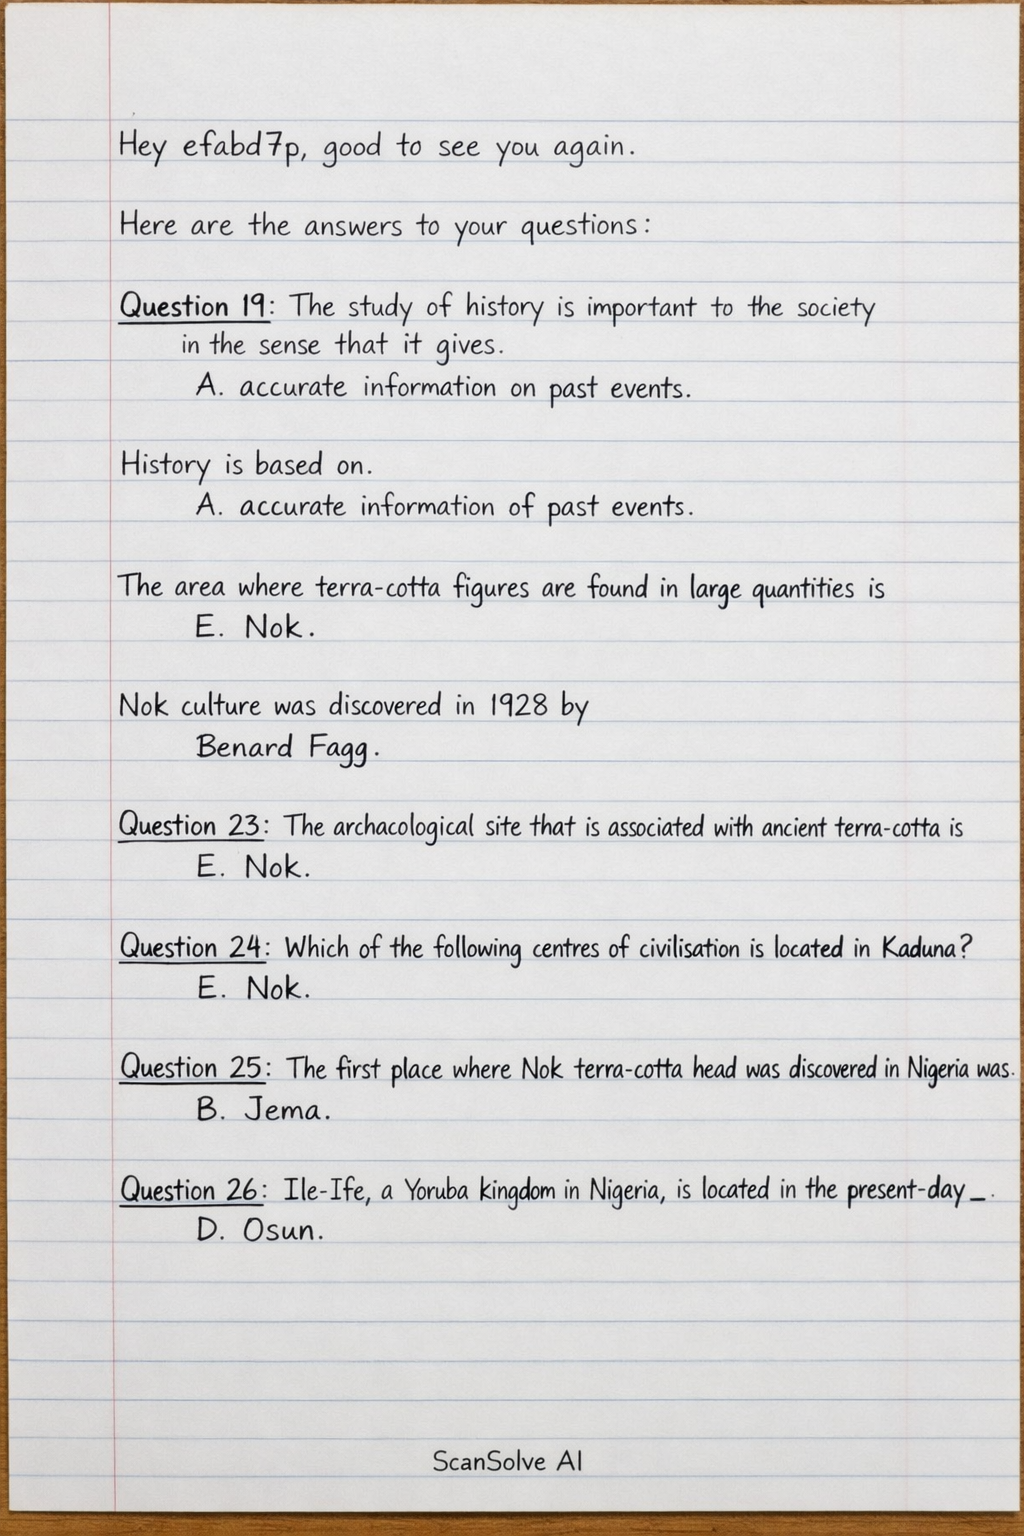 Hey efabd7p, good to see you again.
Here are the answers to your questions:
Question 19: The study of history is important to the society
in the sense that it gives.
A. accurate information on past events.
History is based on.
A. accurate information of past events.
The area where terra-cotta figures are found in large quantities is
E. Nok.
Nok culture was discovered in 1928 by
Benard Fagg.
Question 23: The archacological site that is associated with ancient terra-cotta is
E. Nok.
Question 24: Which of the following centres of civilisation is located in Kaduna?
E. Nok.
Question 25: The first place where Nok terra-cotta head was discovered in Nigeria was.
B. Jema.
Question 26: Ile-Ife, a Yoruba kingdom in Nigeria, is located in the present-day _.
D. Osun.
ScanSolve AI